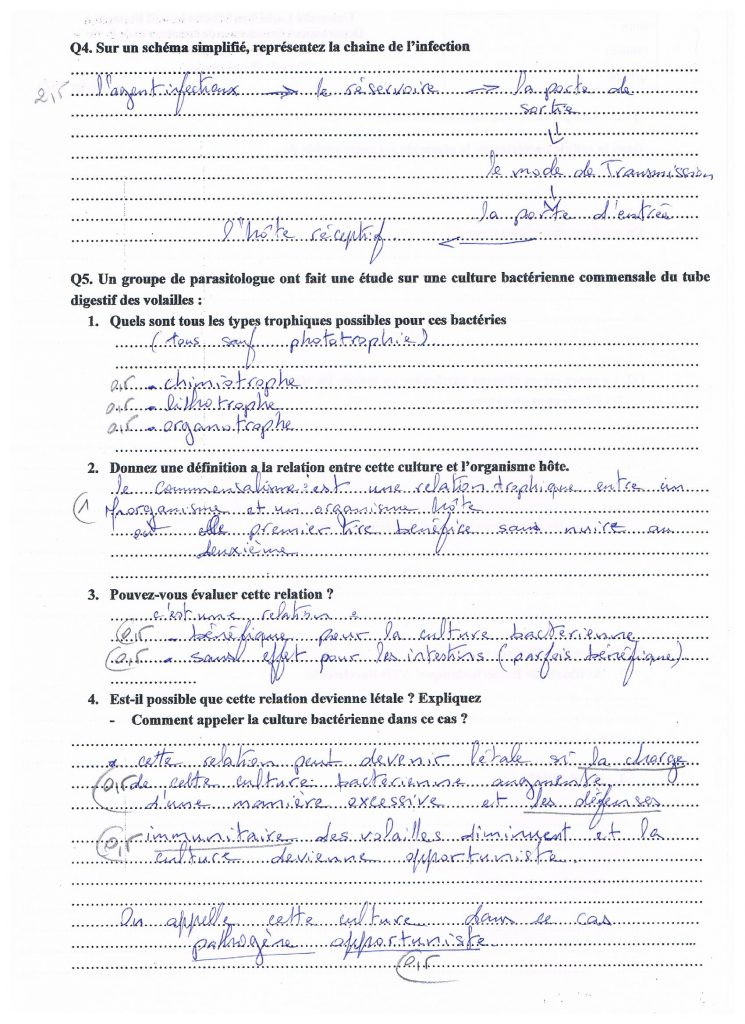 Q4. Sur un schéma simplifié, représentez la chaine de l'infection
2,5 l'agent infectieux → le réservoire → la porte de
sortie
↓
le mode de Transmission
↓
la porte d'entrée
l'hôte réceptif ←
Q5. Un groupe de parasitologue ont fait une étude sur une culture bactérienne commensale du tube
digestif des volailles :
1. Quels sont tous les types trophiques possibles pour ces bactéries
(tous sauf phototrophie)
0,5 - chimiotrophe
0,5 - lithotrophe
0,5 - organotrophe
2. Donnez une définition a la relation entre cette culture et l'organisme hôte.
le commensalisme : est une relation trophique entre un
1 µorganisme et un organisme hôte
où premier tire bénéfice sans nuire au
deuxième
3. Pouvez-vous évaluer cette relation ?
c'est une relation :
0,5 - bénéfique pour la culture bacterienne
0,5 - sans effet pour les intestins (parfois bénéfique)
4. Est-il possible que cette relation devienne létale ? Expliquez
- Comment appeler la culture bactérienne dans ce cas ?
* cette relation peut devenir létale si la charge
0,5 de cette culture bacterienne augmente
d'une manière excessive et les défenses
0,5 immunitaire des volailles diminuent et la
culture devienne opportuniste
On appelle cette culture dans ce cas
pathogène opportuniste
0,5